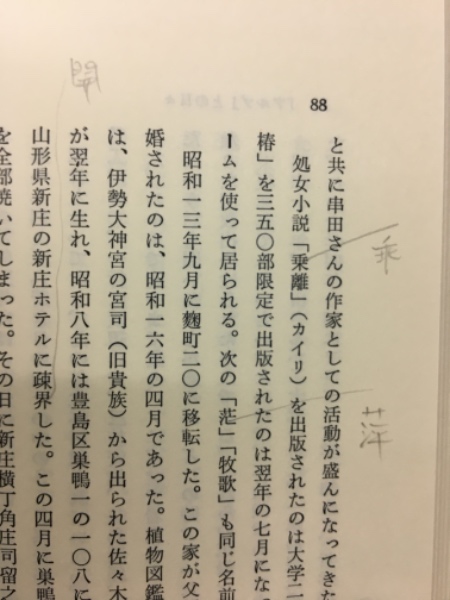 88
乖
と共に串田さんの作家としての活動が盛んになってきた
処女小説「乗離」(カイリ)を出版されたのは大学二
椿」を三五〇部限定で出版されたのは翌年の七月にな
ームを使って居られる。次の「茫」「牧歌」も同じ名前
昭和一三年九月に麴町二〇に移転した。この家が父
婚されたのは、昭和一六年の四月であった。植物図鑑
は、伊勢大神宮の宮司(旧貴族)から出られた佐々木
が翌年に生れ、昭和八年には豊島区巣鴨一の一〇八に
開
山形県新庄の新庄ホテルに疎界した。この四月に巣鴨
を全部焼いてしまった。その日に新庄横丁角庄司留之